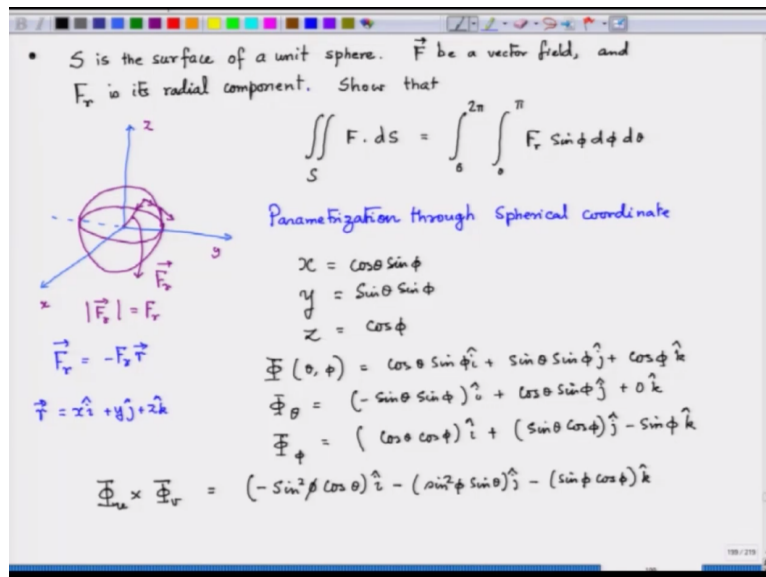 • S is the surface of a unit sphere. F⃗ be a vector field, and
F_r is its radial component. Show that
∬_S F . dS = ∫_0^{2π} ∫_0^π F_r Sinϕ dϕ dθ
z
y
x
F⃗_r
|F⃗_r| = F_r
F⃗_r = -F_r r⃗
r⃗ = xî + yĵ + zk̂
Parametrization through Spherical coordinate
x = cosθ Sinϕ
y = Sinθ Sinϕ
z = cosϕ
Φ (θ, ϕ) = cosθ Sinϕ î + Sinθ Sinϕ ĵ + cosϕ k̂
Φ_θ = (- Sinθ Sinϕ) î + cosθ Sinϕ ĵ + 0 k̂
Φ_ϕ = ( cosθ cosϕ) î + ( Sinθ Cosϕ) ĵ - Sinϕ k̂
Φ_u × Φ_v = (- Sin²ϕ Cosθ) î - (Sin²ϕ Sinθ) ĵ - (Sinϕ cosϕ) k̂
199 / 219
199